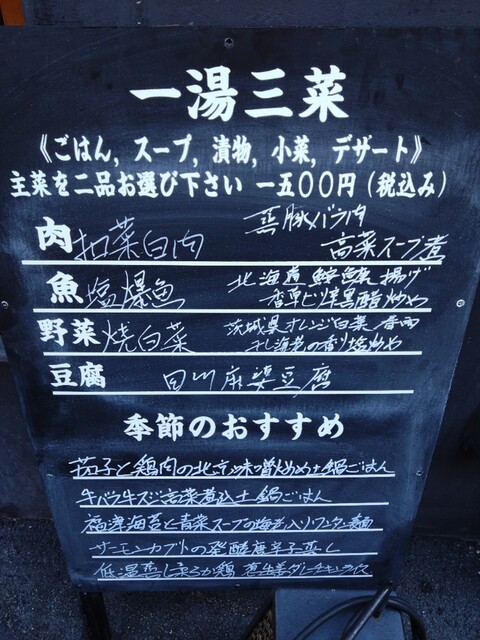 一湯三菜
《ごはん, スープ, 漬物, 小菜, デザート》
主菜を二品お選び下さい 一五〇〇円(税込み)
肉 扣菜白肉 蒸豚バラ肉
高菜スープ煮
魚 塩爆魚 北海道 揚げ
黒醋炒め
野菜 焼白菜 茨城県オレンジ白菜 春雨
干し海老の香り塩炒め
豆腐 四川麻婆豆腐
季節のおすすめ
茄子と鶏肉の北京味噌炒め土鍋ごはん
牛バラ牛スジ高菜煮込土鍋ごはん
福津海苔と青菜スープの海老入りワンタン麺
サーモンカブトの発酵唐辛子蒸し
低温蒸し柔らか鶏 葱生姜ダレチキンライス